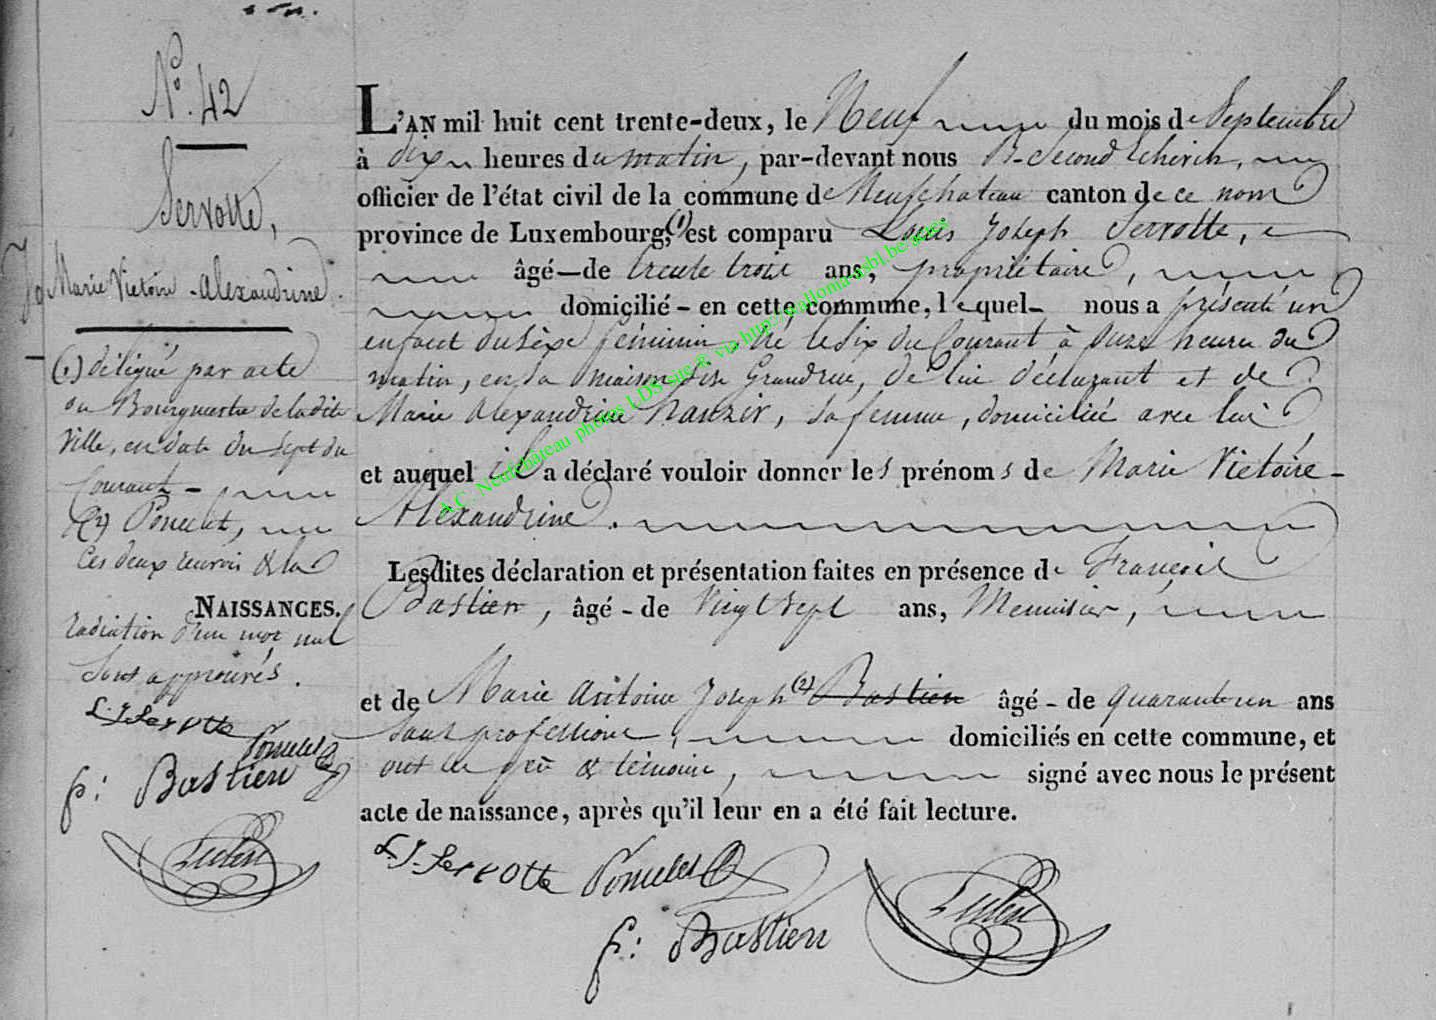 N°. 42
Servotte,
Marie Victoire-Alexandrine.
(1) délégué par acte
du Bourgmestre de ladite
Ville, en date du sept du
Courant -
(2) Poncelet,
Ces deux renvois & la
NAISSANCES.
radiation d'un mot nul
sont approuvés.
L. J. Servotte
Poncelet
f: Bastien
L'AN mil huit cent trente-deux, le Neuf du mois de Septembre
à dix heures du matin, par-devant nous second Echevin,
officier de l'état civil de la commune de Neufchateau canton de ce nom
province de Luxembourg, (1) est comparu Louis Joseph Servotte,
âgé - de trente trois ans, propriétaire,
domicilié - en cette commune, lequel - nous a présenté un
enfant du sèxe féminin, né le six du Courant à onze heures du
matin, en sa maison sise Grandrue, de lui déclarant et de
Marie Alexandrine Hanzir, sa femme, domiciliée avec lui
et auquel il a déclaré vouloir donner les prénoms de Marie Victoire-
Alexandrine.
Lesdites déclaration et présentation faites en présence de François
Bastien, âgé - de Vingt sept ans, Menuisier,
et de Marie Antoine Joseph (2) Bastien âgé - de quarante un ans
sans profession, domiciliés en cette commune, et
ont les père & témoins, signé avec nous le présent
acte de naissance, après qu'il leur en a été fait lecture.
L. J. Servotte Poncelet
f: Bastien
A.C. Neufchâteau photos LDS site ® via http://wallonia-asbl.be/actes